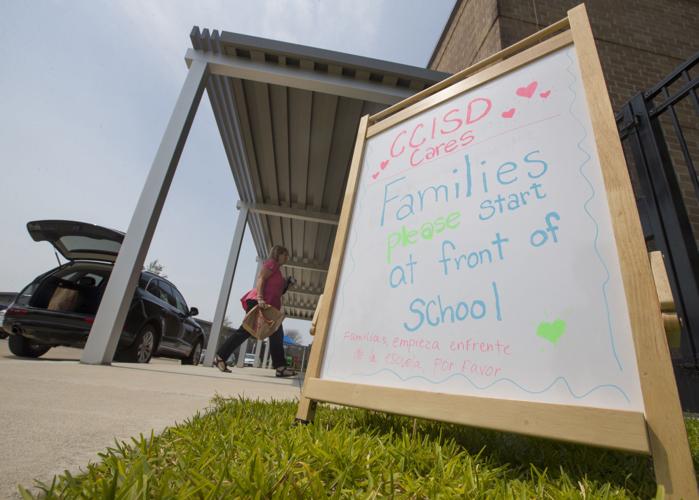 CCISD
Cares
Families
please start
at front of
school
Familias, empieza enfrente
de la escuela por favor